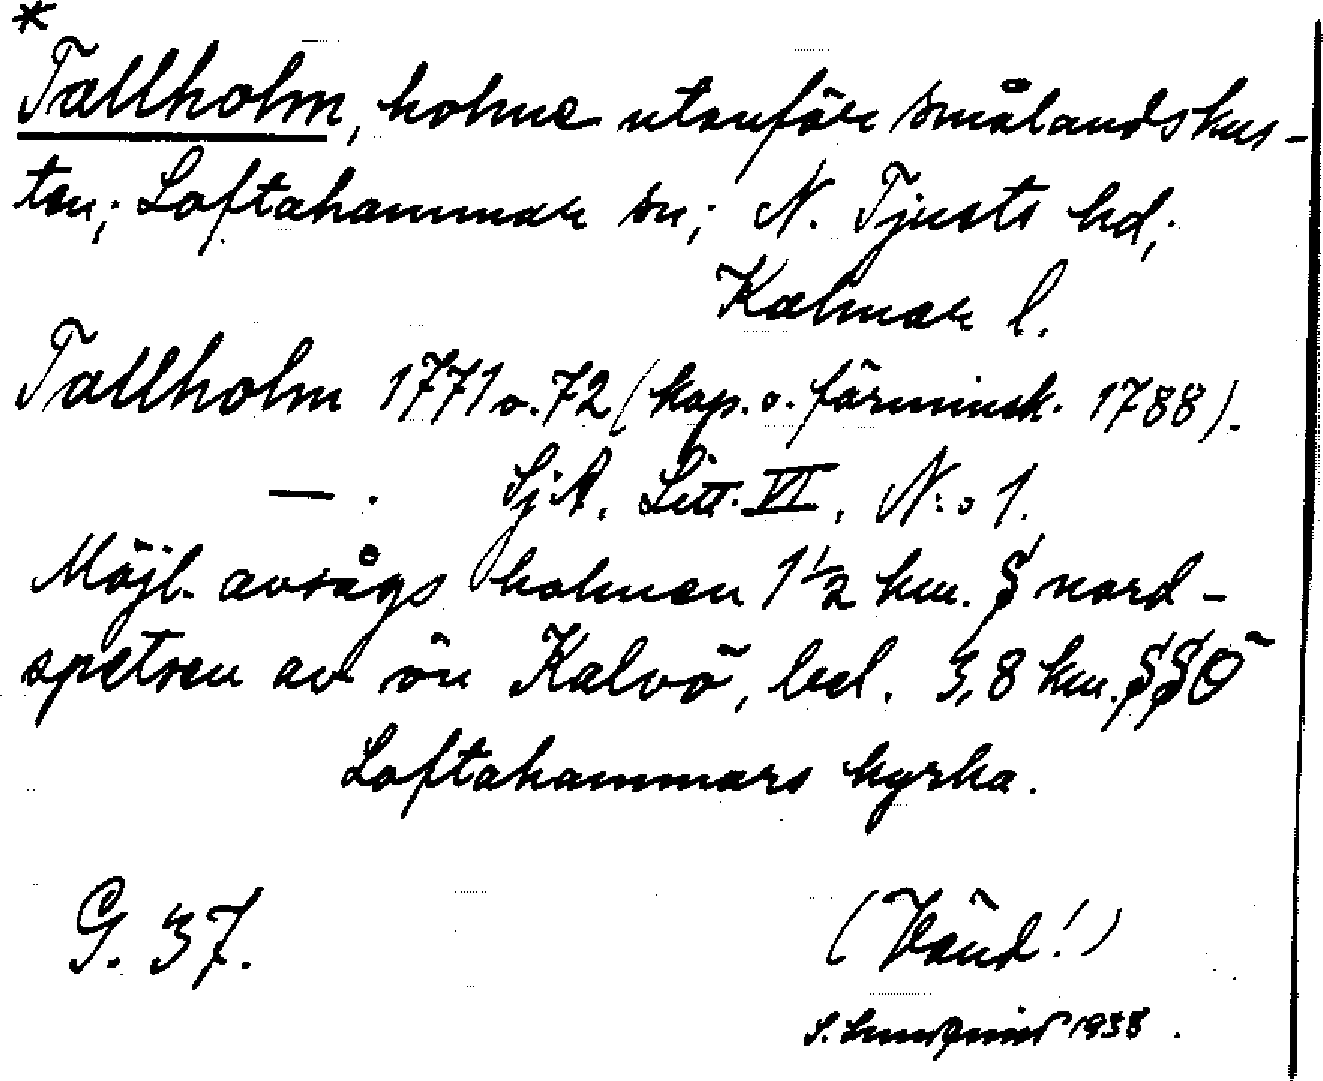 *
Tallholm, holme utanför smålandskus-
ten; Loftahammar sn; N. Tjusts hd;
Kalmar l.
Tallholm 1771 o. 72 (kop. o. förminsk. 1788).
— . SjA. Litt. VI. N:o 1.
Möjl. avsågs holmen 1½ km. S nord-
spetsen av ön Kalvö, bel. 3,8 km. SSÖ
Loftahammars kyrka.
G. 37.
(Vänd!)
S. Lundqvist 1938.